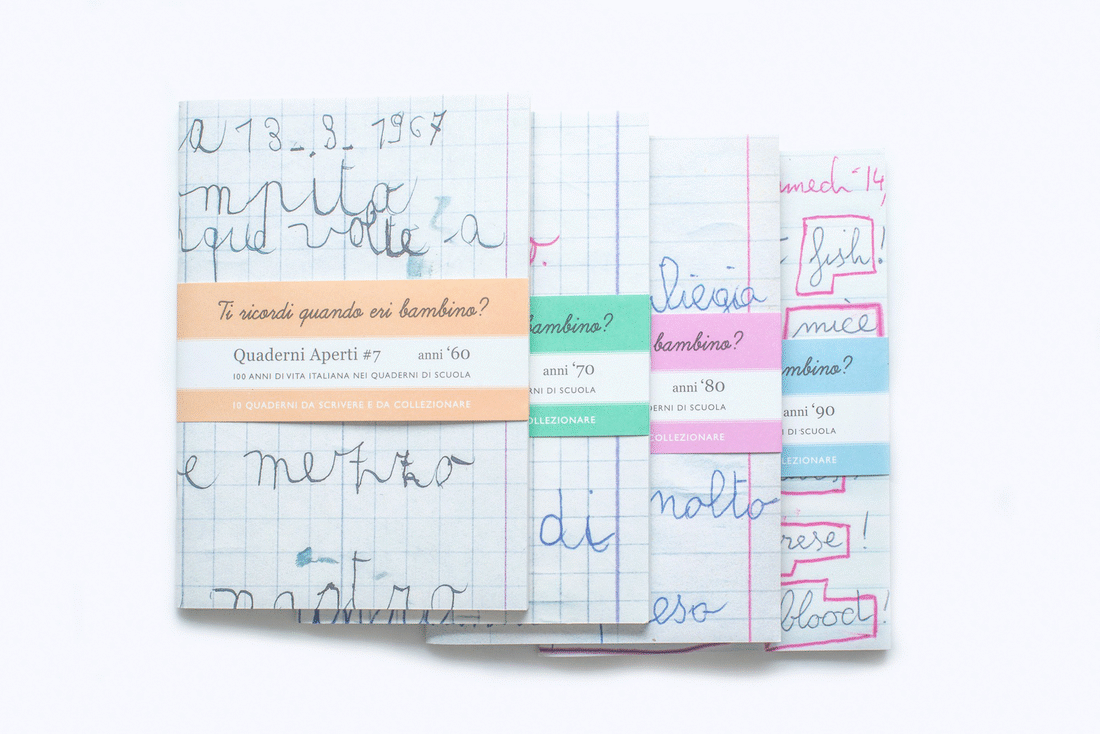 a 13_9_1967
mpita
que volte a
Ti ricordi quando eri bambino?
Quaderni Aperti #7 anni ‘60
100 ANNI DI VITA ITALIANA NEI QUADERNI DI SCUOLA
10 QUADERNI DA SCRIVERE E DA COLLEZIONARE
e mezzo
bambino?
anni ‘70
RNI DI SCUOLA
OLLEZIONARE
di
bambino?
anni ‘80
DERNI DI SCUOLA
COLLEZIONARE
molto
eso
14,
fish!
mice
mbino?
anni ‘90
I DI SCUOLA
LEZIONARE
rese!
blood!